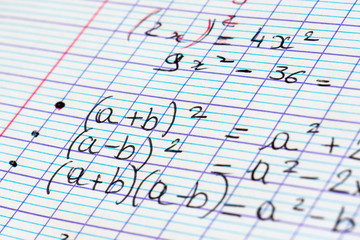 (2x)² = 4x²
9x² - 36 =
• (a+b)² = a² + 2
• (a-b)² = a² - 2
• (a+b)(a-b) = a² - b